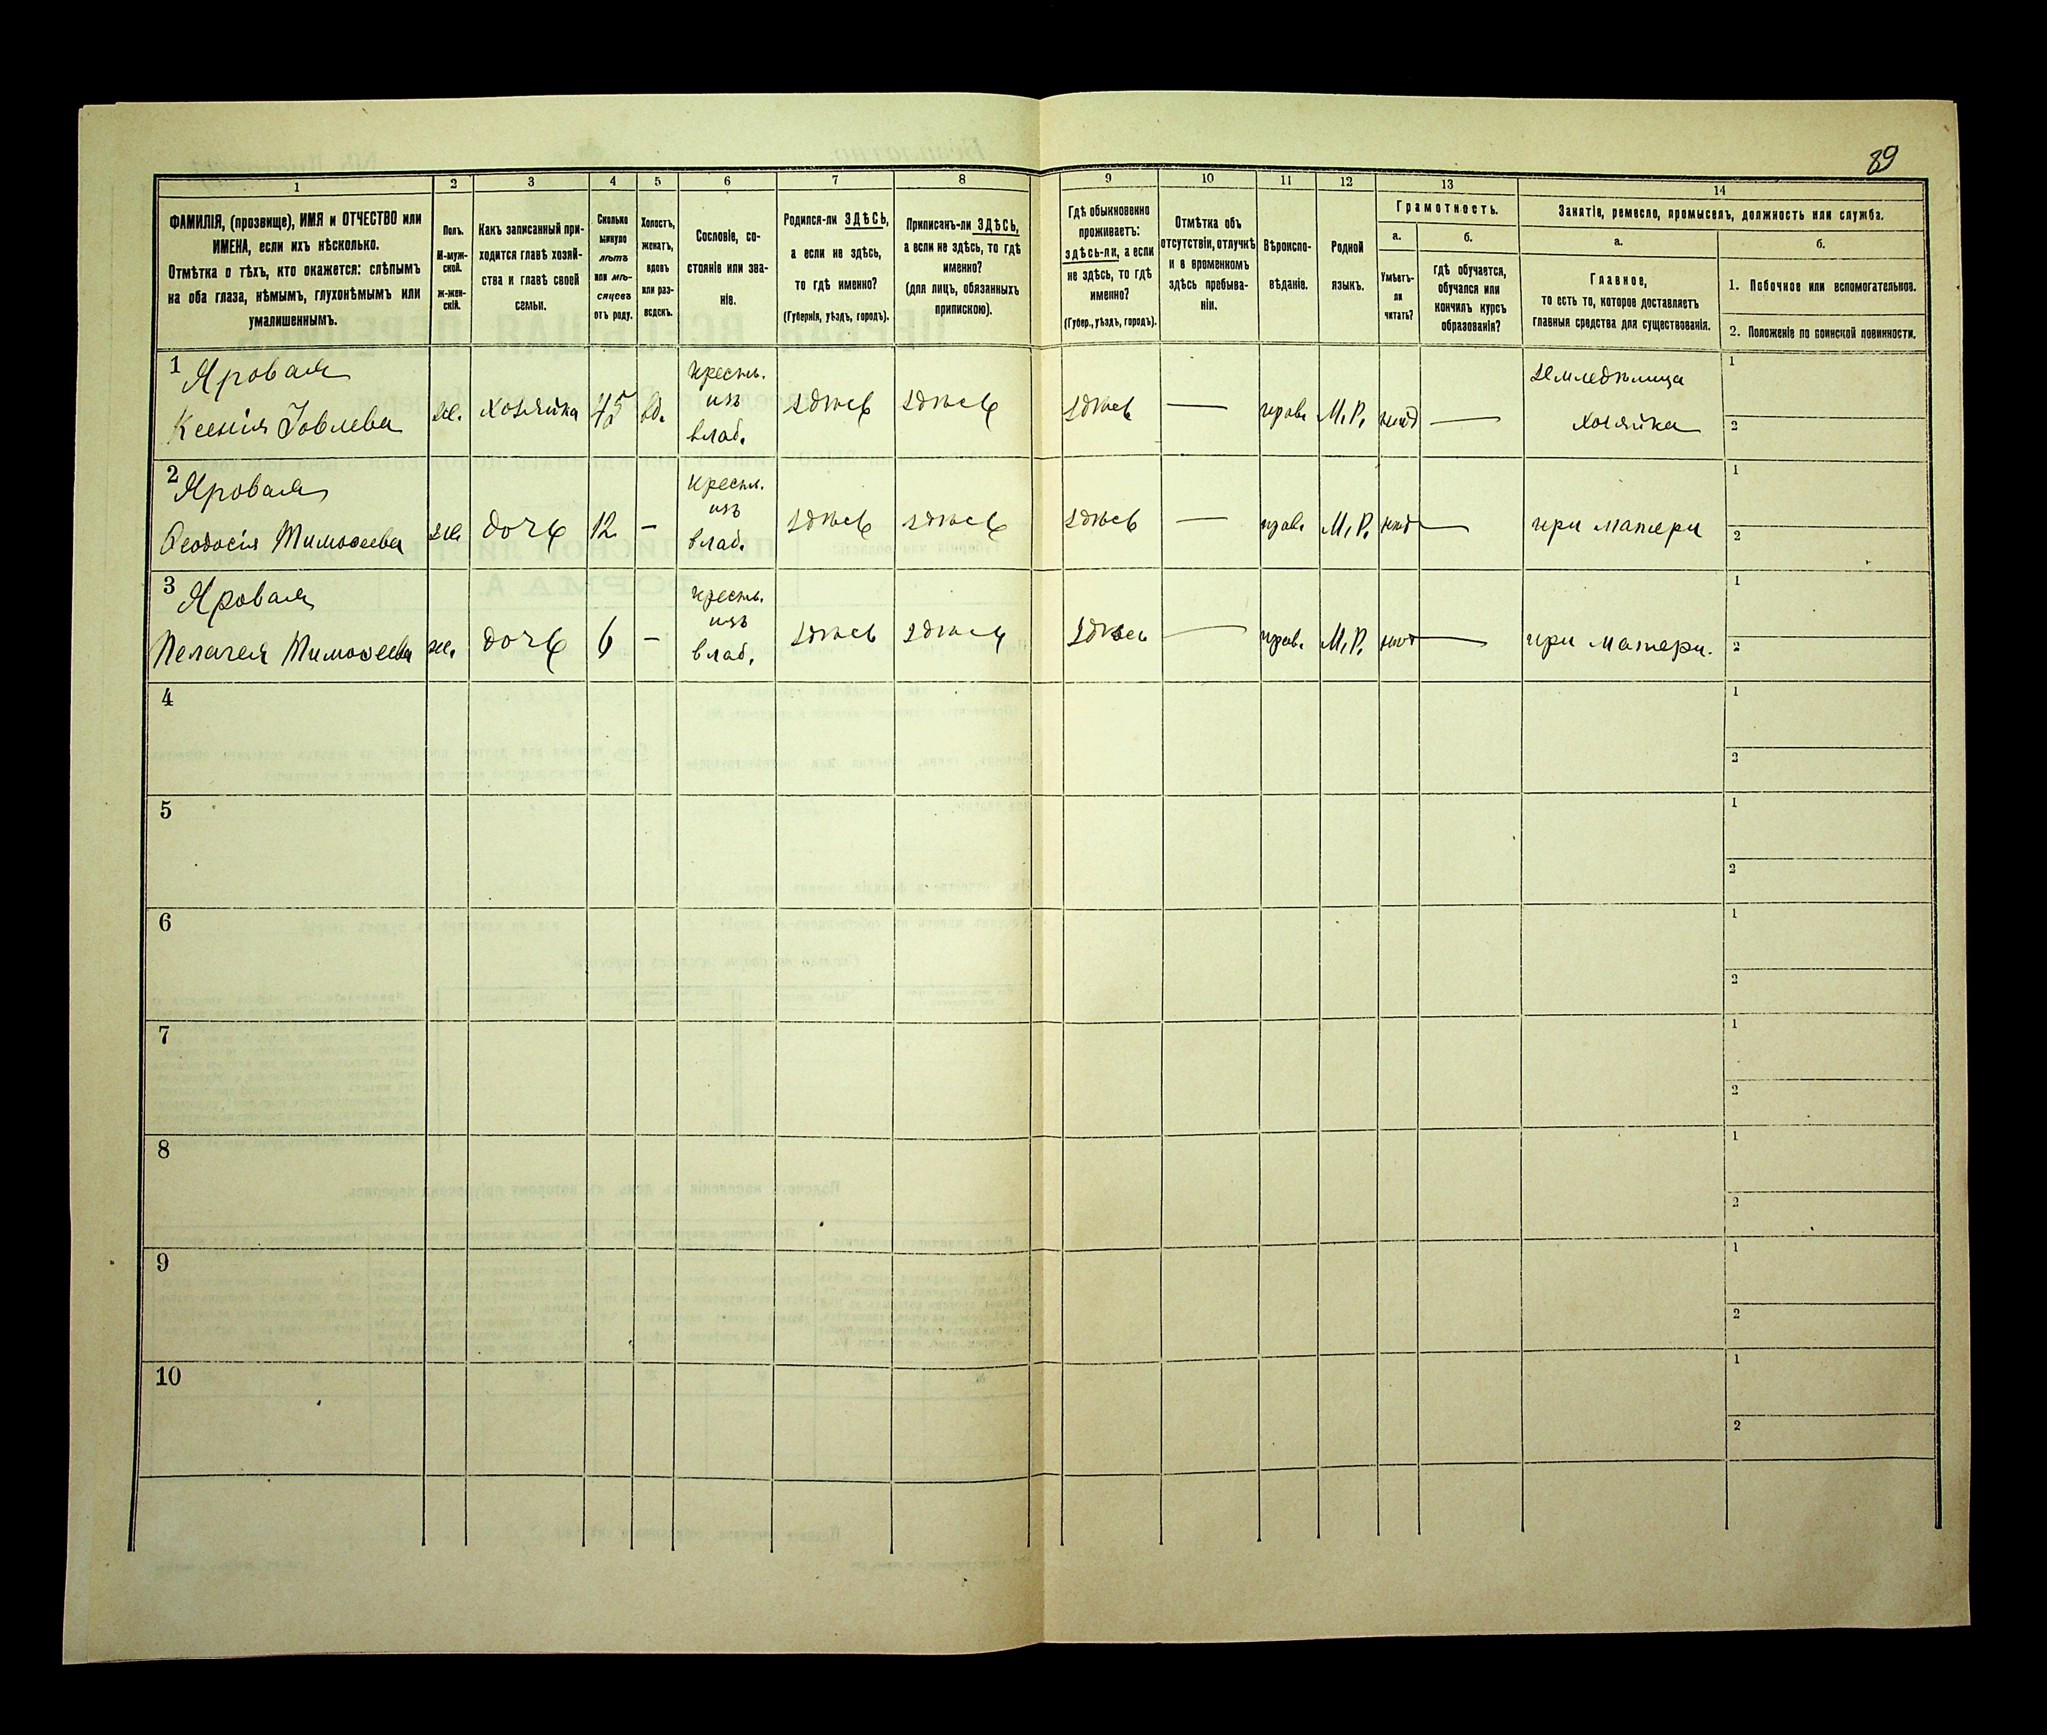 89
1
2
3
4
5
6
7
8
9
10
11
12
13
14
ФАМИЛІЯ, (прозвище), ИМЯ и ОТЧЕСТВО или
ИМЕНА, если ихъ нѣсколько.
Отмѣтка о тѣхъ, кто окажется: слѣпымъ
на оба глаза, нѣмымъ, глухонѣмымъ или
умалишеннымъ.
Полъ.
М-муж-
ской.
ж-жен-
скій.
Какъ записанный при-
ходится главѣ хозяй-
ства и главѣ своей
семьи.
Сколько
минуло
лѣтъ
или мѣ-
сяцевъ
отъ роду.
Холостъ,
женатъ,
вдовъ
или раз-
веденъ.
Сословіе, со-
стояніе или зва-
ніе.
Родился-ли ЗДѢСЬ,
а если не здѣсь,
то гдѣ именно?
(Губернія, уѣздъ, городъ).
Приписанъ-ли ЗДѢСЬ,
а если не здѣсь, то гдѣ
именно?
(для лицъ, обязанныхъ
припискою).
Гдѣ обыкновенно
проживаетъ:
здѣсь-ли, а если
не здѣсь, то гдѣ
именно?
(Губер., уѣздъ, городъ).
Отмѣтка объ
отсутствіи, отлучкѣ
и о временномъ
здѣсь пребыва-
ніи.
Вѣроиспо-
вѣданіе.
Родной
языкъ.
Грамотность.
а.
Умѣетъ-
ли
читать?
б.
гдѣ обучается,
обучался или
кончилъ курсъ
образованія?
Занятіе, ремесло, промыселъ, должность или служба.
а.
Главное,
то есть то, которое доставляетъ
главныя средства для существованія.
б.
1. Побочное или вспомогательное.
2. Положеніе по воинской повинности.
1 Яровая
Ксенія Іовлева
ж.
хозяйка
45
вд.
крестьн.
изъ
влад.
здѣсь
здѣсь
здѣсь
—
прав.
М.Р.
нѣтъ
—
земледѣлица
хозяйка
1
2
2 Яровая
Ѳеодосія Тимоѳеева
ж.
дочь
12
—
крестьн.
изъ
влад.
здѣсь
здѣсь
здѣсь
—
прав.
М.Р.
нѣтъ
—
при матери
1
2
3 Яровая
Пелагея Тимоѳеева
ж.
дочь
6
—
крестьн.
изъ
влад.
здѣсь
здѣсь
здѣсь
—
прав.
М.Р.
нѣтъ
—
при матери.
1
2
4
1
2
5
1
2
6
1
2
7
1
2
8
1
2
9
1
2
10
1
2